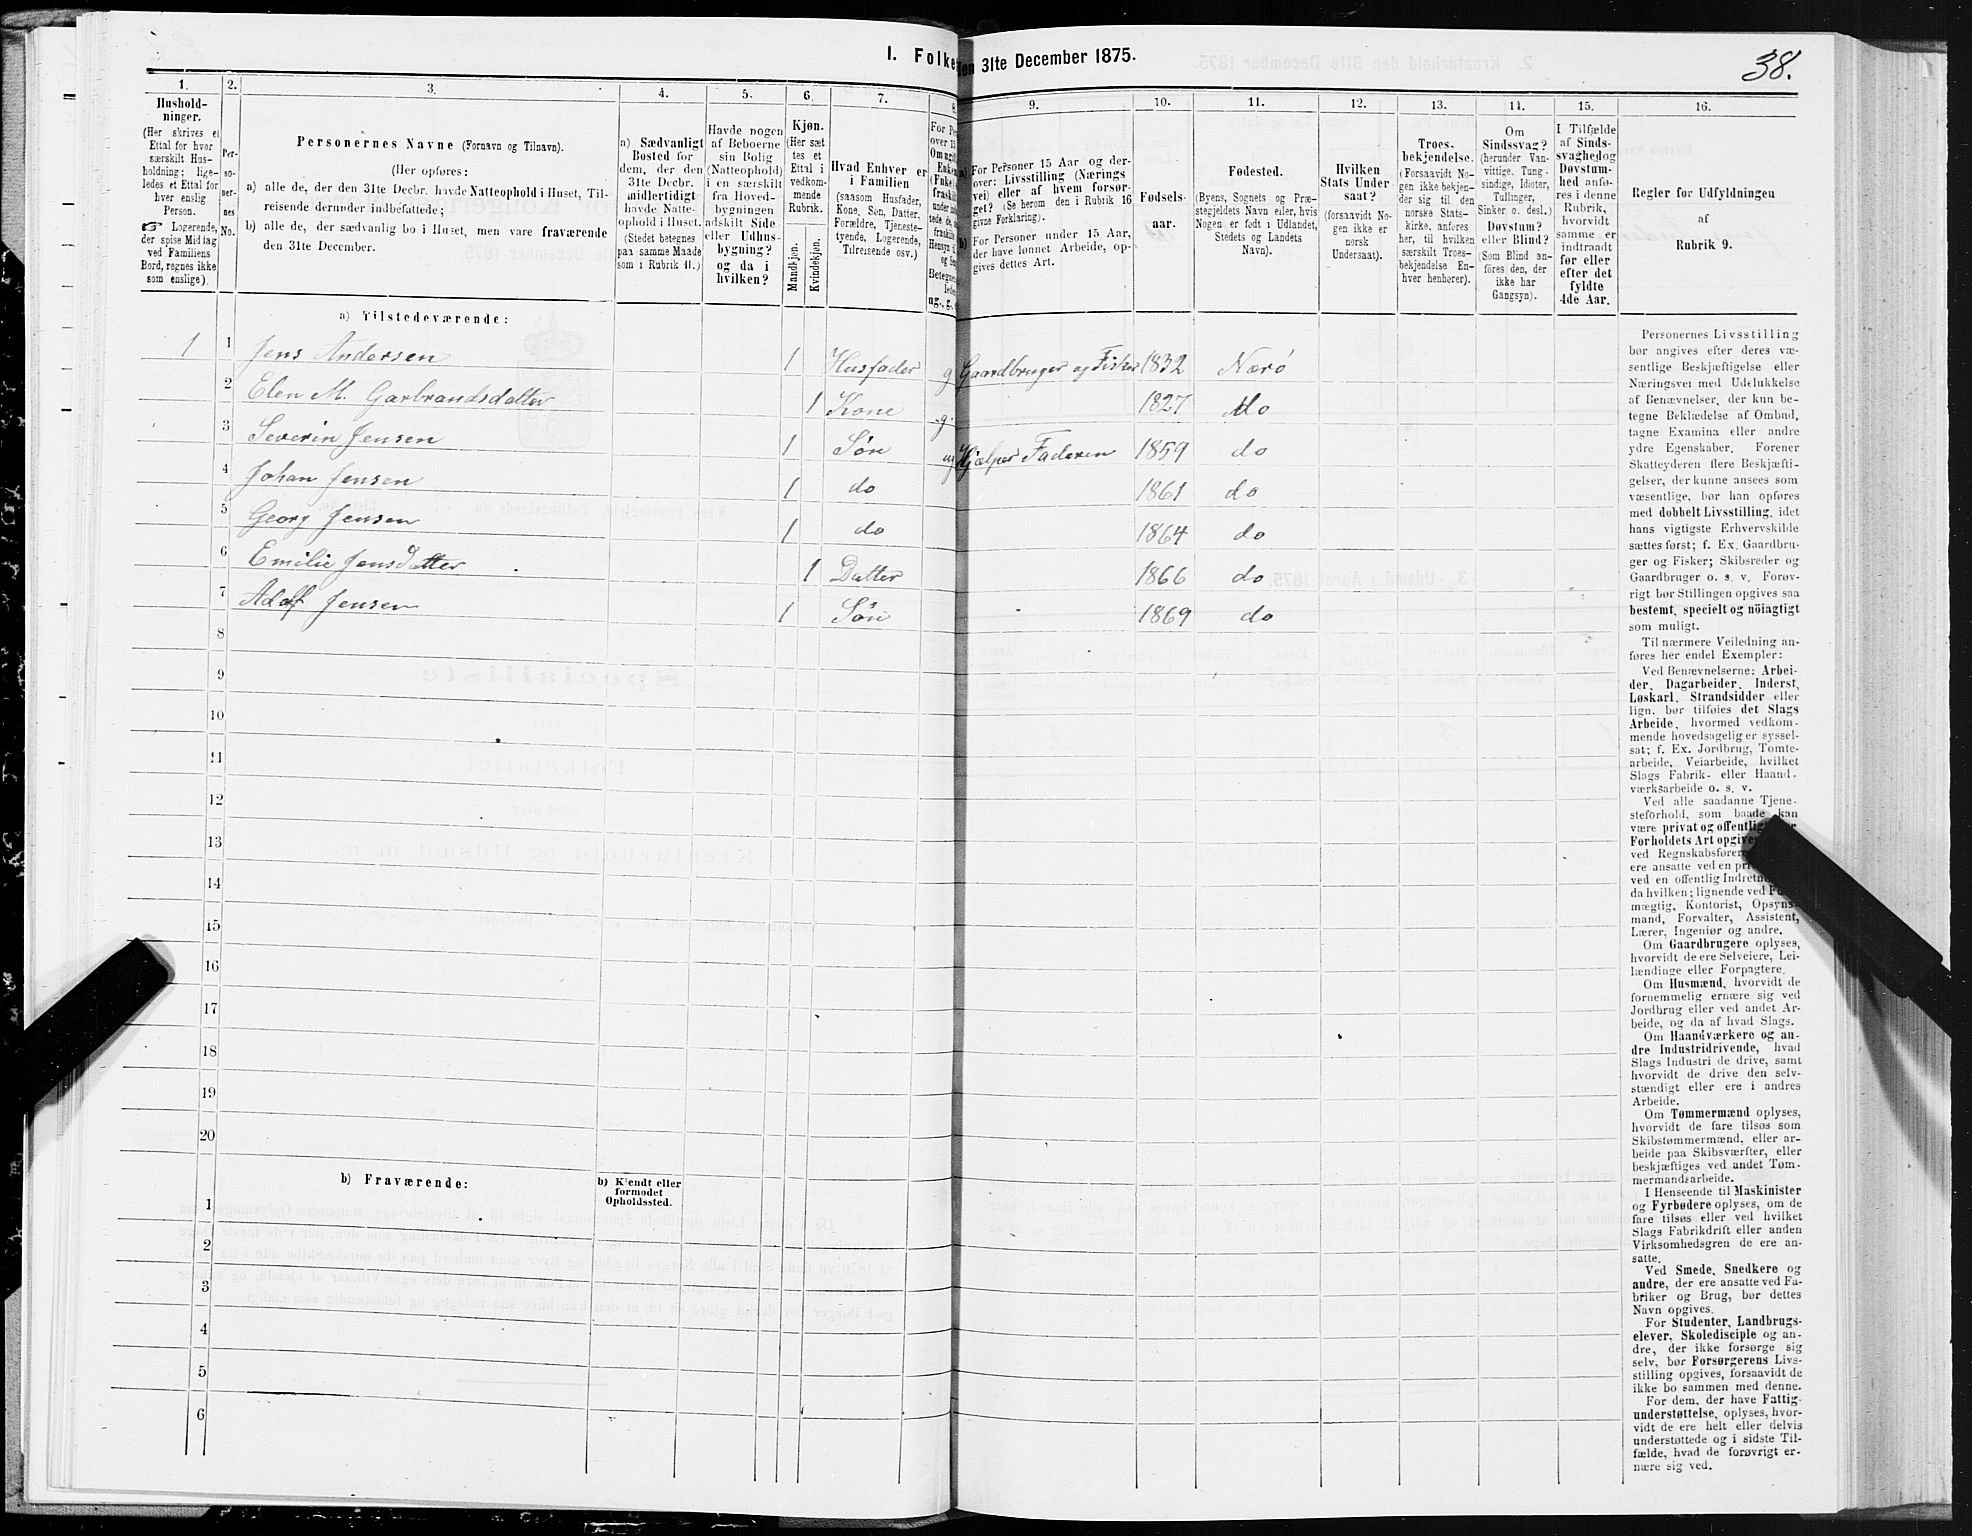 I. Folke en 31te December 1875.
38.
1. 2. 3. 4. 5. 6. 7. 8. 9. 10. 11. 12. 13. 14. 15. 16.
Hushold-
ninger.
(Her skrives et
Ettal for hver
særskilt Hus-
holdning; lige-
ledes et Ettal for
hver enslig
Person.
☞ Logerende,
der spise Middag
ved Familiens
Bord, regnes ikke
som enslige).
Per-
so-
ner-
nes
No.
Personernes Navne (Fornavn og Tilnavn).
(Her opføres:
a) alle de, der den 31te Decbr. havde Natteophold i Huset, Til-
reisende derunder indbefattede;
b) alle de, der sædvanlig bo i Huset, men vare fraværende
den 31te December.
a) Sædvanligt
Bosted for
dem, der den
31te Decbr.
midlertidigt
havde Natte-
ophold i Huset.
(Stedet betegnes
paa samme Maade
som i Rubrik 11.)
Havde nogen
af Beboerne
sin Bolig
(Natteophold)
i en særskilt
fra Hoved-
bygningen
adskilt Side
eller Udhus-
bygning?
og da i
hvilken?
Kjøn.
(Her sæt
tes et
Ettal i
vedkom-
mende
Rubrik.
Mandkjøn.
Kvindekjøn.
Hvad Enhver er
i Familien
(saasom Husfader,
Kone, Søn, Datter,
Forældre, Tjeneste-
tyende, Logerende,
Tilreisende osv.)
For Personer 15 Aar og der-
over: Livsstilling (Nærings
vei) eller af hvem forsør-
get? (Se herom den i Rubrik 16
givne Forklaring).
b) For Personer under 15 Aar,
der have lønnet Arbeide, op-
gives dettes Art.
Fødsels-
aar.
Fødested.
(Byens, Sognets og Præ-
stegjeldets Navn eller, hvis
Nogen er født i Udlandet,
Stedets og Landets
Navn).
Hvilken
Stats Under
saat?
(forsaavidt No-
gen ikke er
norsk
Undersaat).
Troes-
bekjendelse.
(Forsaavidt No-
gen ikke bekjen-
der sig til den
norske Stats-
kirke, anføres
her, til hvilken
særskilt Troes-
bekjendelse En-
hver henhører).
Om
Sindssvag?
(herunder Van-
vittige, Tung-
sindige, Idioter,
Tullinger,
Sinker o. desl.)
Døvstum?
eller Blind?
(Som Blind an-
føres den, der
ikke har
Gangsyn).
I Tilfælde
af Sinds-
svaghed og
Døvstum-
hed anfø-
res i denne
Rubrik,
hvorvidt
samme er
indtraadt
før eller
efter det
fyldte
4de Aar.
Regler for Udfyldningen
af
Rubrik 9.
a) Tilstedeværende:
1 1 Jens Andersen 1 Husfader g Gaardbruger og Fisker 1832 Nærö
2 Elen M. Garbrandsdatter 1 Kone g 1827 do
3 Severin Jensen 1 Søn ug Hjælper Faderen 1859 do
4 Johan Jensen 1 do 1861 do
5 Georg Jensen 1 do 1864 do
6 Emilie Jensdatter 1 Datter 1866 do
7 Adolf Jensen 1 Søn 1869 do
8
9
10
11
12
13
14
15
16
17
18
19
20
b) Fraværende:
b) Kjendt eller
formodet
Opholdssted.
1
2
3
4
5
6
Personernes Livsstilling
bør angives efter deres væ-
sentlige Beskjæftigelse eller
Næringsvei med Udelukkelse
af Benævnelser, der kun be-
tegne Beklædelse af Ombud,
tagne Examina eller andre
ydre Egenskaber. Forener
Skatteyderen flere Beskjæfti-
gelser, der kunne ansees som
væsentlige, bør han opføres
med dobbelt Livsstilling, idet
hans vigtigste Erhvervskilde
sættes først; f. Ex. Gaardbru-
ger og Fisker; Skibsreder og
Gaardbruger o. s. v. Forøv-
rigt bør Stillingen opgives saa
bestemt, specielt og nöiagtigt
som muligt.
Til nærmere Veiledning an-
føres her endel Exempler:
Ved Benævnelserne: Arbei-
der, Dagarbeider, Inderst,
Løskarl, Strandsidder eller
lign. bør tilføies det Slags
Arbeide, hvormed vedkom-
mende hovedsagelig er syssel-
sat; f. Ex. Jordbrug, Tomte-
arbeide, Veiarbeide, hvilket
Slags Fabrik- eller Haand-
værksarbeide o. s. v.
Ved alle saadanne Tjene-
steforhold, som baade kan
være privat og offentlig
Forholdets Art opgives
ved Regnskabsfører
ere ansatte ved en pri
ved en offentlig Indretn
da hvilken; lignende ved Fu
mægtig, Kontorist, Opsyns-
mand, Forvalter, Assistent,
Lærer, Ingeniør og andre.
Om Gaardbrugere oplyses,
hvorvidt de ere Selveiere, Lei-
lændinge eller Forpagtere.
Om Husmænd, hvorvidt de
fornemmelig ernære sig ved
Jordbrug eller ved andet Ar-
beide, og da af hvad Slags.
Om Haandværkere og an-
dre Industridrivende, hvad
Slags Industri de drive, samt
hvorvidt de drive den selv-
stændigt eller ere i andres
Arbeide.
Om Tømmermænd oplyses,
hvorvidt de fare tilsøs som
Skibstømmermænd, eller ar-
beide paa Skibsværfter, eller
beskjæftiges ved andet Tøm-
mermandsarbeide.
I Henseende til Maskinister
og Fyrbødere oplyses, om de
fare tilsøs eller ved hvilket
Slags Fabrikdrift eller anden
Virksomhedsgren de ere an-
satte.
Ved Smede, Snedkere og
andre, der ere ansatte ved Fa-
briker og Brug, bør dettes
Navn opgives.
For Studenter, Landbrugs-
elever, Skoledisciple og an-
dre, der ikke forsørge sig
selv, bør Forsørgerens Livs-
stilling opgives, forsaavidt de
ikke bo sammen med denne.
For dem, der have Fattig-
understøttelse, oplyses, hvor-
vidt de ere helt eller delvis
understøttede og i sidste Til-
fælde, hvad de forøvrigt er-
nære sig ved.